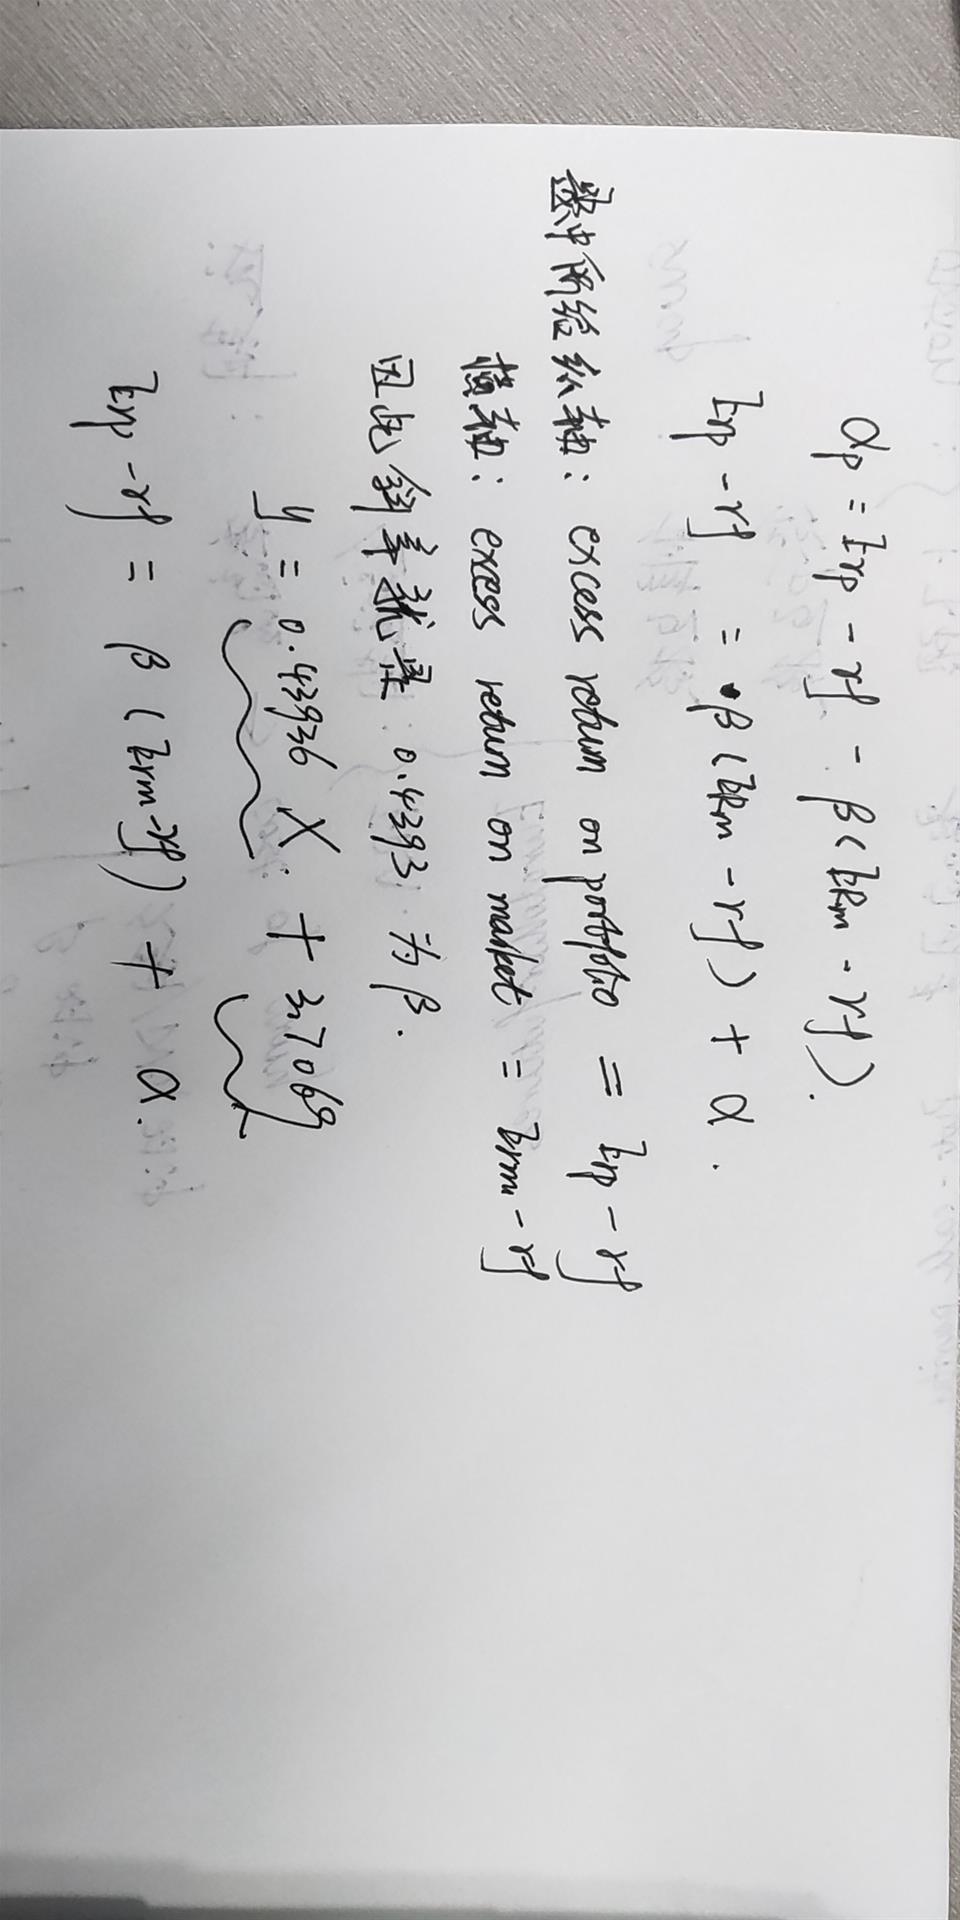 αp = Erp - rf - β(ERm - rf).
Erp - rf = β(ERm - rf) + α.
题中所给纵轴: excess return on portfolio = Erp - rf
横轴: excess return on market = Erm - rf
因此斜率就是 0.4393 为 β.
y = 0.43936 X + 3.7069
Erp - rf = β (Erm-rf) + α.